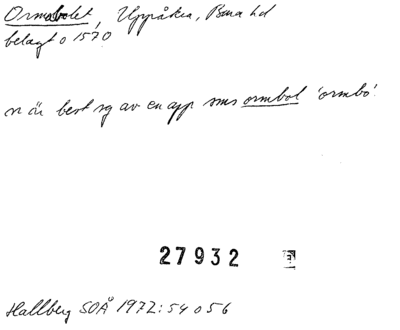 Ormabolet, Uppåkra, Bara hd
belagt o 1570
nr är best sg av en app sms ormbol 'ormbo'.
27932
Hallberg SOÅ 1972:54 o 56